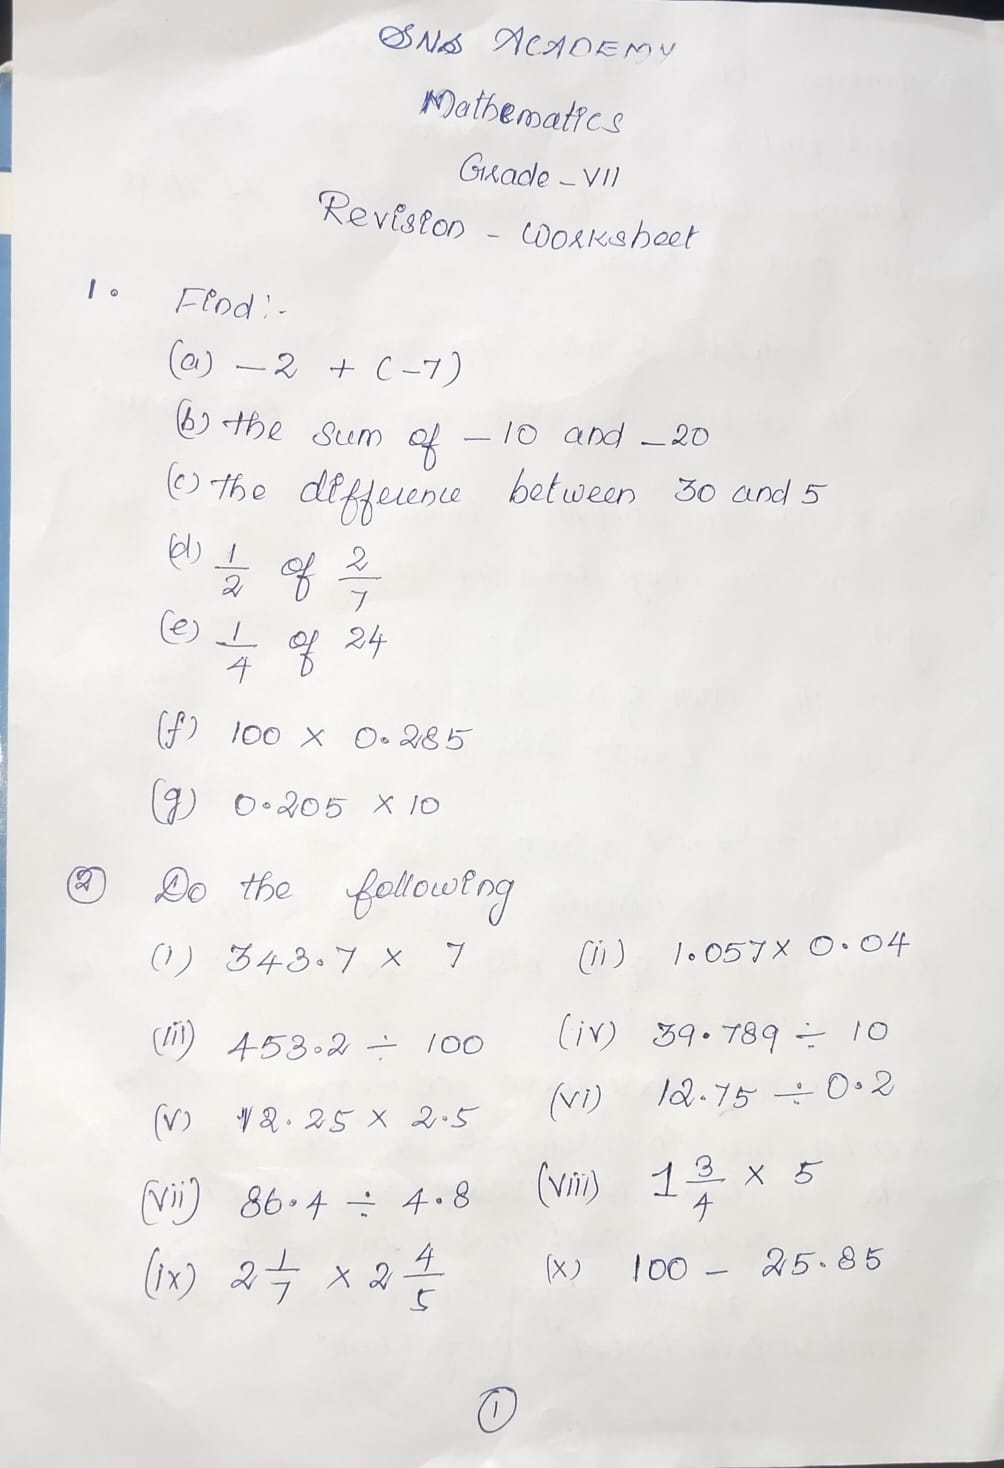 SNS ACADEMY
Mathematics
Grade - VII
Revision - Worksheet
1. Find:-
(a) -2 + (-7)
(b) the sum of -10 and -20
(c) the difference between 30 and 5
(d) 1/2 of 2/7
(e) 1/4 of 24
(f) 100 × 0.285
(g) 0.205 × 10
② Do the following
(i) 343.7 × 7 (ii) 1.057 × 0.04
(iii) 453.2 ÷ 100 (iv) 39.789 ÷ 10
(v) 12.25 × 2.5 (vi) 12.75 ÷ 0.2
(vii) 86.4 ÷ 4.8 (viii) 1 3/4 × 5
(ix) 2 1/7 × 2 4/5 (x) 100 - 25.85
①